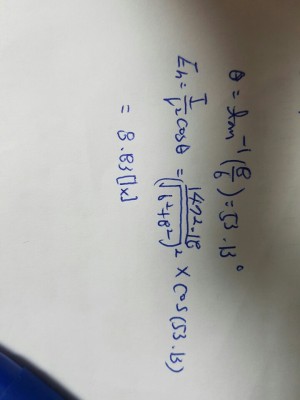 θ = tan⁻¹(8/6) = 53.13°
Eh = I/r² cosθ = 1472.18/(√(6²+8²))² × cos(53.13)
= 8.83[lx]